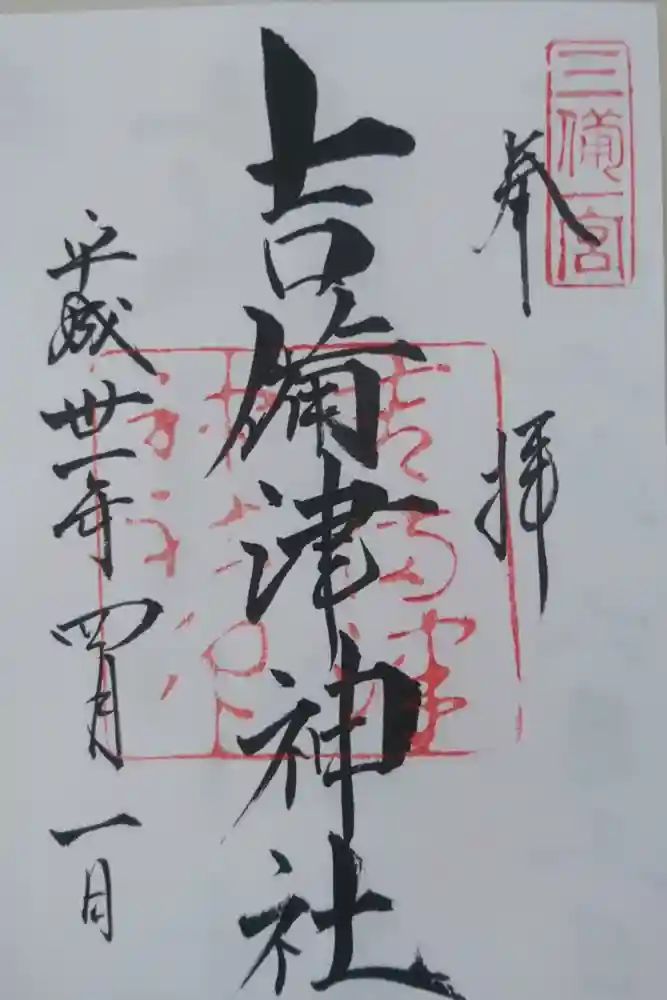 三備一宮
奉拝
吉備津神社
平成卅一年四月一日